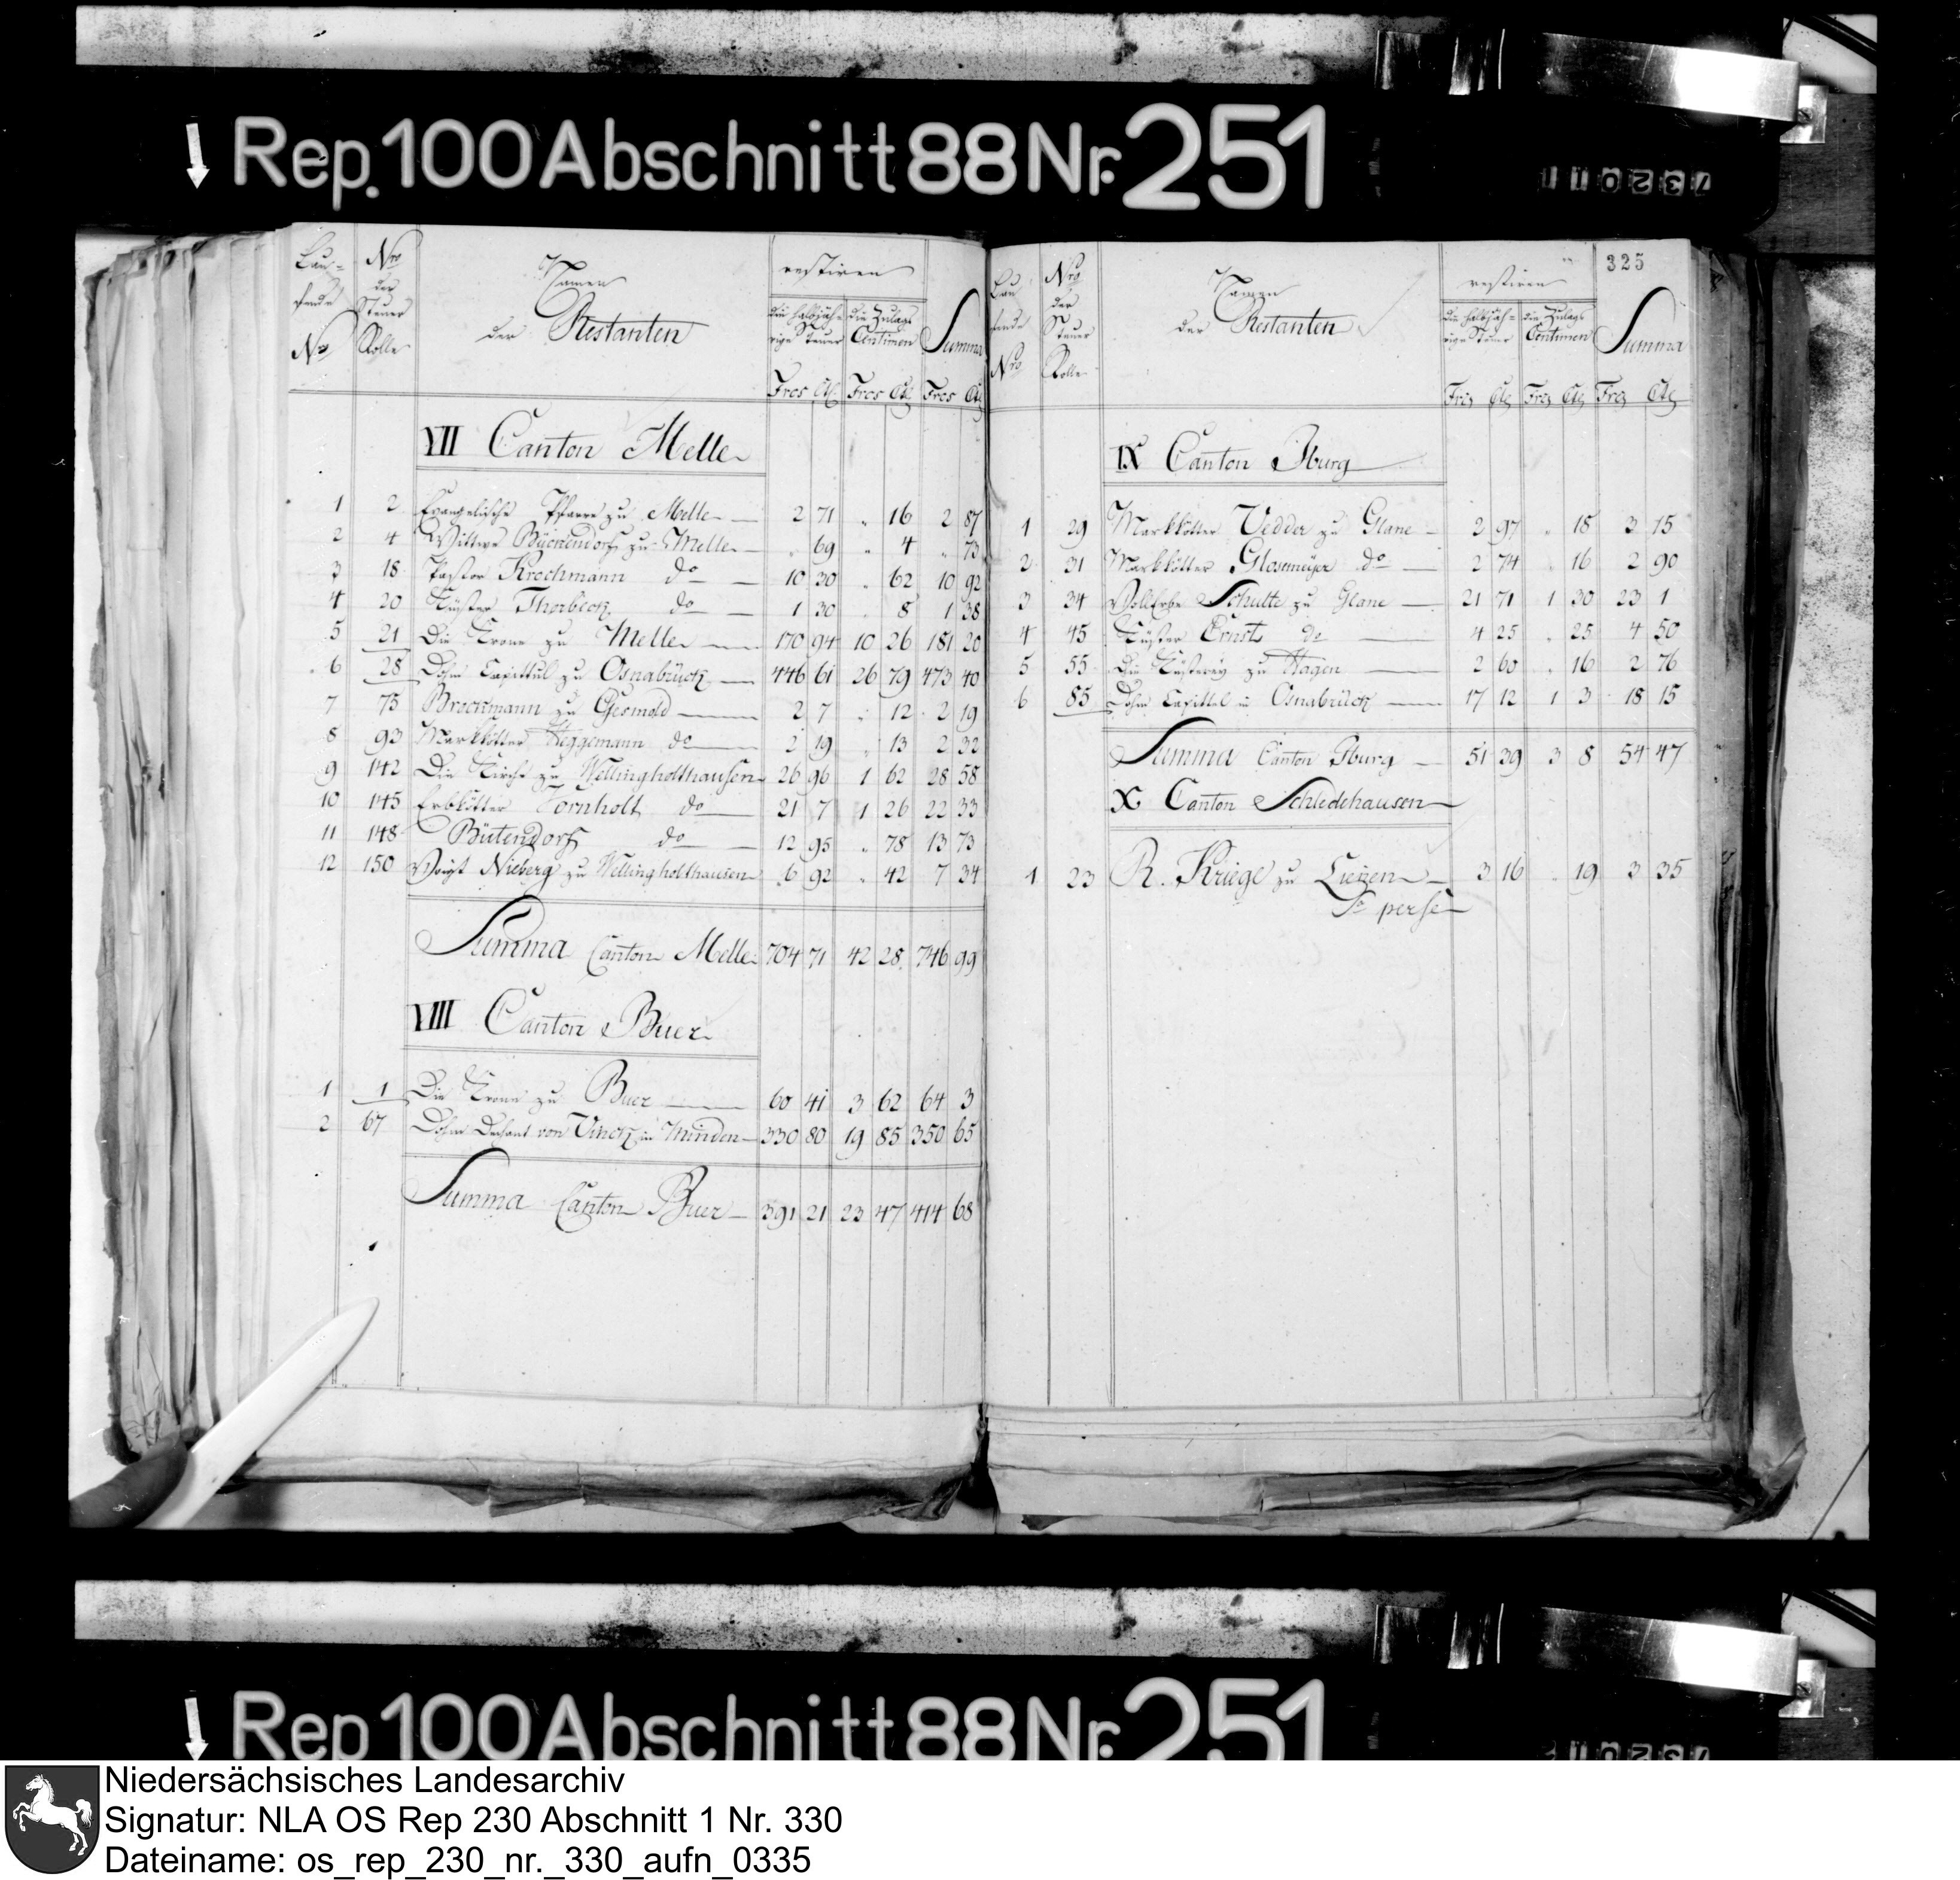 Rep. 100 Abschnitt 88 Nr. 251
Lau-
fende
Nro
Nro
der
Steuer
Rolle
Namen
der Restanten
restiren
die halbjäh-
rige Steuer
die Zulags
Centimen
Summa
Frcs Cts Frcs Cts Frcs Cts
VII Canton Melle
1 2 Evangelische Pfarre zu Melle 2 71 " 16 2 87
2 4 Wittwe Bückendorf zu Melle " 69 " 4 " 73
3 18 Pastor Krochmann do 10 30 " 62 10 92
4 20 Küster Thorbeck do 1 30 " 8 1 38
5 21 Die Krone zu Melle 170 94 10 26 181 20
6 28 Dohm Capittul zu Osnabrück 446 61 26 79 473 40
7 75 Brockmann zu Gesmold 2 7 " 12 2 19
8 93 Markkötter Heggemann do 2 19 " 13 2 32
9 142 Die Kirche zu Wellingholthausen 26 96 1 62 28 58
10 145 Erbkötter Tornholt do 21 7 1 26 22 33
11 148 Bütendorf do 12 95 " 78 13 73
12 150 Voigt Nieberg zu Wellingholthausen 6 92 " 42 7 34
Summa Canton Melle 704 71 42 28 746 99
VIII Canton Buer
1 1 Die Krone zu Buer 60 41 3 62 64 3
2 67 Dohm Dechant von Vinck in Minden 330 80 19 85 350 65
Summa Canton Buer 391 21 23 47 414 68
325
Lau
fende
Nro
Nro
der
Steuer
Rolle
Namen
der Restanten
restiren
die halbjäh-
rige Steuer
die Zulags
Centimen
Summa
Frcs Cts Frcs Cts Frcs Cts
IX Canton Iburg
1 29 Markkötter Vedder zu Glane 2 97 " 18 3 15
2 31 Markkötter Glosemeyer do 2 74 " 16 2 90
3 34 VollErbe Schulte zu Glane 21 71 1 30 23 1
4 45 Küster Ernst do 4 25 " 25 4 50
5 55 Die Küsterey zu Hagen 2 60 " 16 2 76
6 85 Dohm Capittel in Osnabrück 17 12 1 3 18 15
Summa Canton Iburg 51 39 3 8 54 47
X Canton Schledehausen
1 23 R. Kriege zu Lienen 3 16 " 19 3 35
Sa perse
Rep 100 Abschnitt 88 Nr. 251
Niedersächsisches Landesarchiv
Signatur: NLA OS Rep 230 Abschnitt 1 Nr. 330
Dateiname: os_rep_230_nr._330_aufn_0335